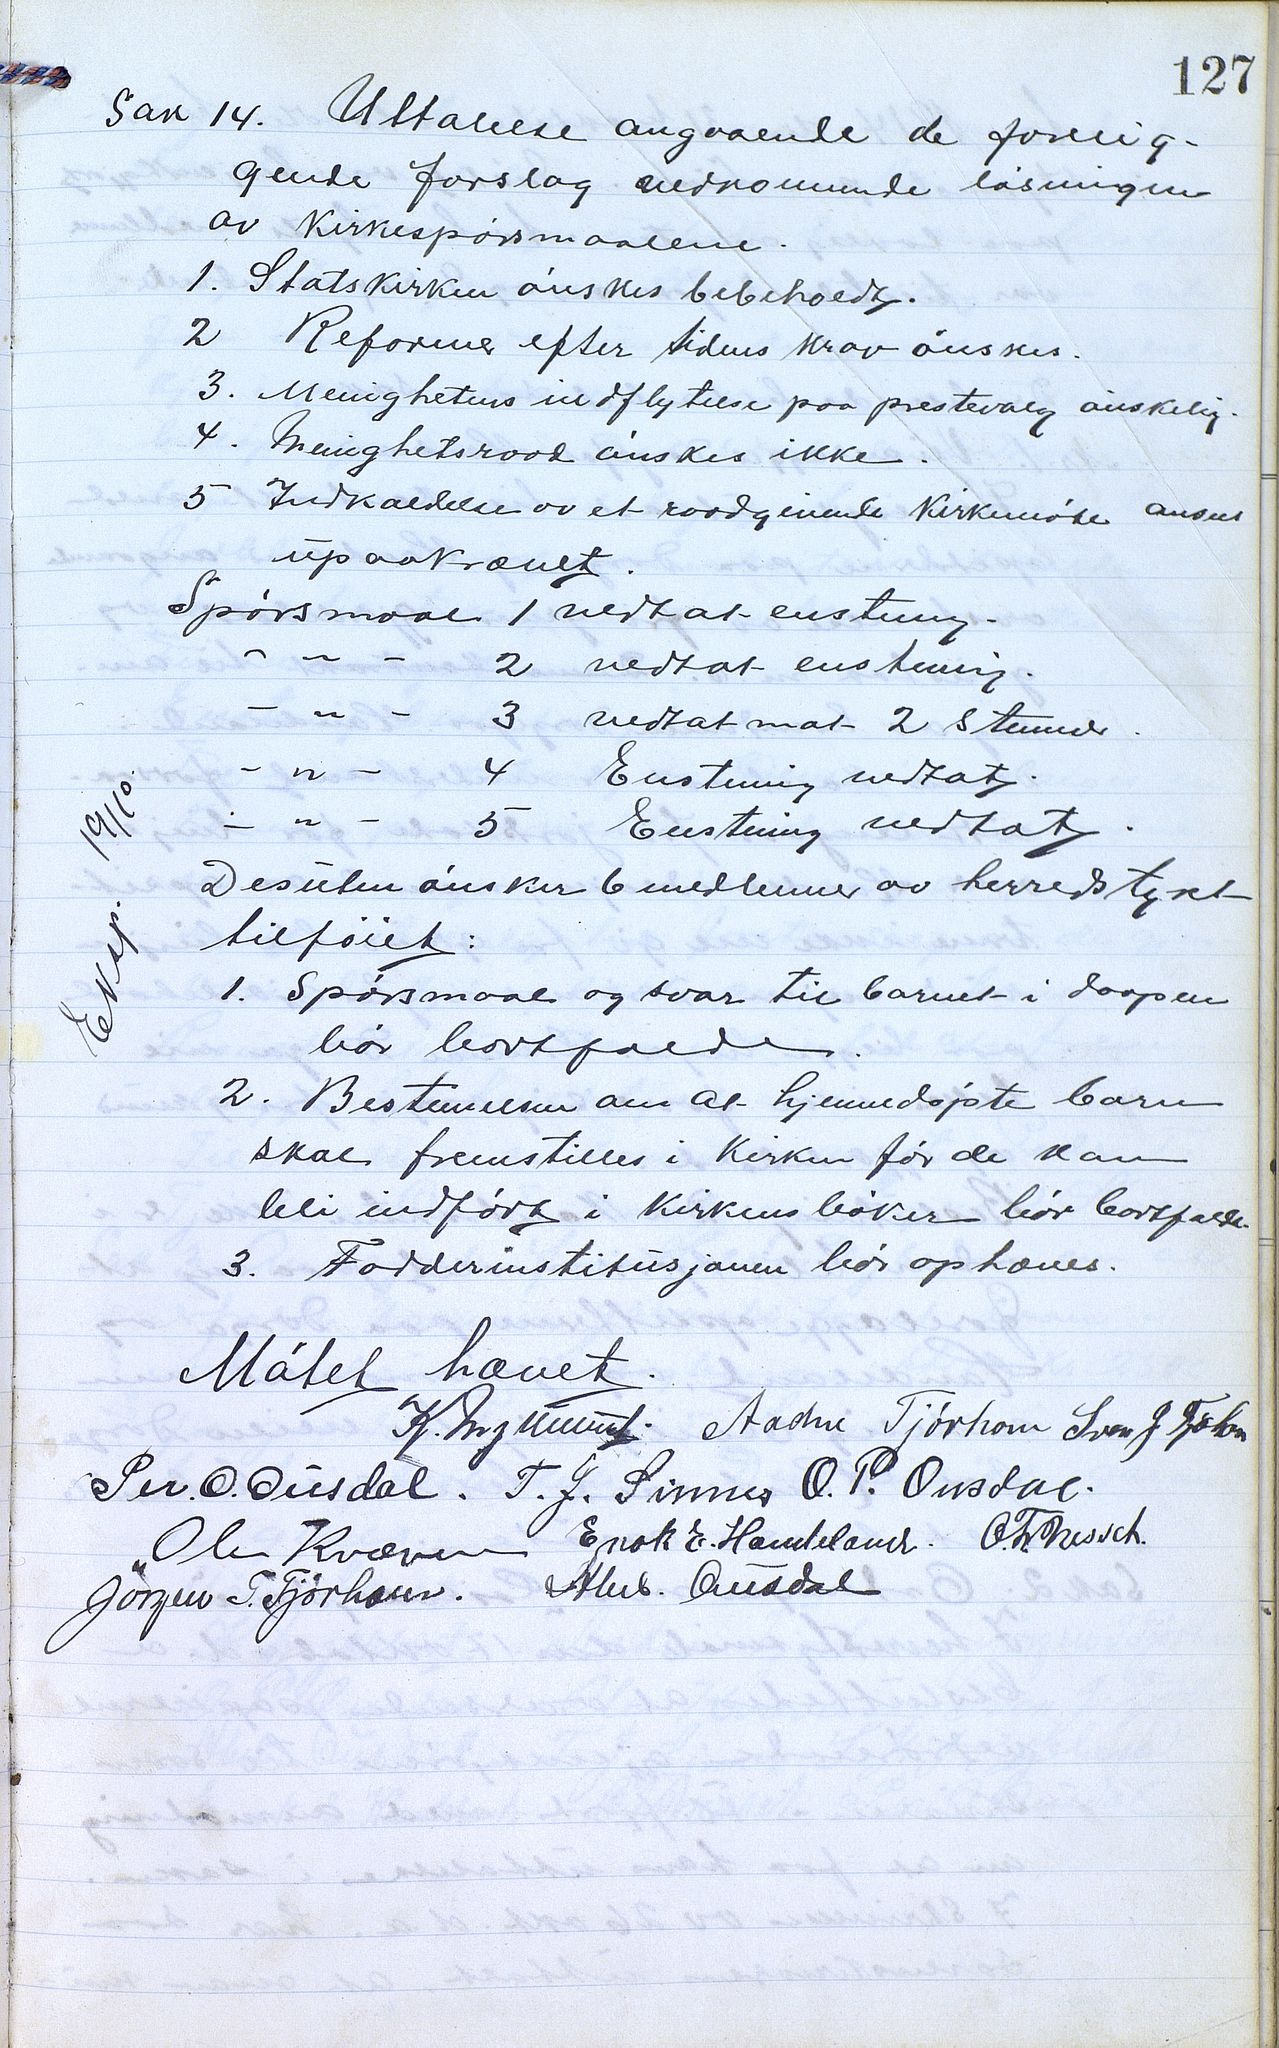 127
Sak 14. Uttalelse angaaende de forelig-
gende forslag vedkommende løsningen
av Kirkespørsmaalene.
1. Statskirken ønskes bebeholdt.
2 Reformer efter tidens krav ønskes.
3. Menighetens indflytelse paa prestevalg ønskelig.
4. Menighetsraad ønskes ikke.
5 Indkaldelse av et raadgivende Kirkemøte ansees
upaakrævet.
Spørsmaal 1 vedtat enstemig.
- " - 2 vedtat enstemig.
- " - 3 vedtat mot 2 stemmer.
- " - 4 Enstemig vedtat.
- " - 5 Enstemig vedtat.
Eksp. 19/10.
Desuten ønsker 6 medlemmer av herredstyret
tilføiet:
1. Spørsmaal og svar til barnet i daapen
bør bortfalde.
2. Bestemmelsen om at hjemmedøpte barn
skal fremstilles i Kirken før de kan
bli indført i Kirkens bøker bør bortfalde.
3. Fadderinstitusjonen bør ophæves.
Møtet hævet.
K. Aadne Tjørhom Sven J
Per. O. Ousdal. T. J. Sinnes O. P. Ousdal.
Ole Kvæven Enok E. Handeland. O. Tr.
Jørgen T. Tjørhom. Alb. Ousdal